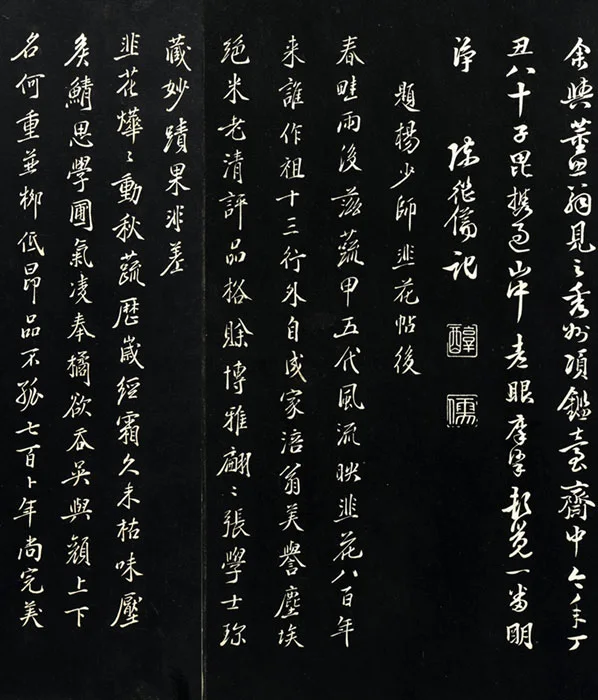 余與董思翁見之秀州項鑑臺齋中今年丁
丑八十子毘携過山中老眼摩挲頓覺一番明
淨 陳繼儒記
醇
儒
題楊少師韭花帖後
春畦雨後茲蔬甲五代風流映韭花八百年
来誰作祖十三行外自成家涪翁美譽塵埃
絕米老清評品格賒博雅翩〻張學士珎
藏妙蹟果非差
韭花燁〻動秋蔬歷歲經霜久未枯味壓
矦鯖思學圃氣凌奉橘欲吞吳與顏上下
名何重並柳低昂品不孤七百卜年尚完美